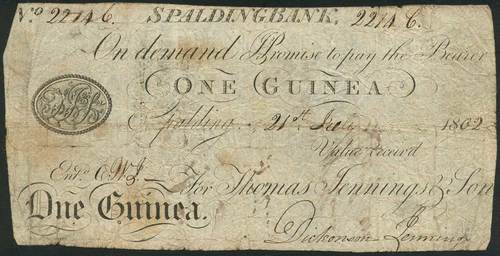 No 22146. SPALDING BANK. 22146.
On demand I Promise to pay the Bearer
ONE GUINEA
Spalding, 21st July 1802
Value received
Entd.
For Thomas Jennings & Son
One Guinea.
Dickonson Jennings